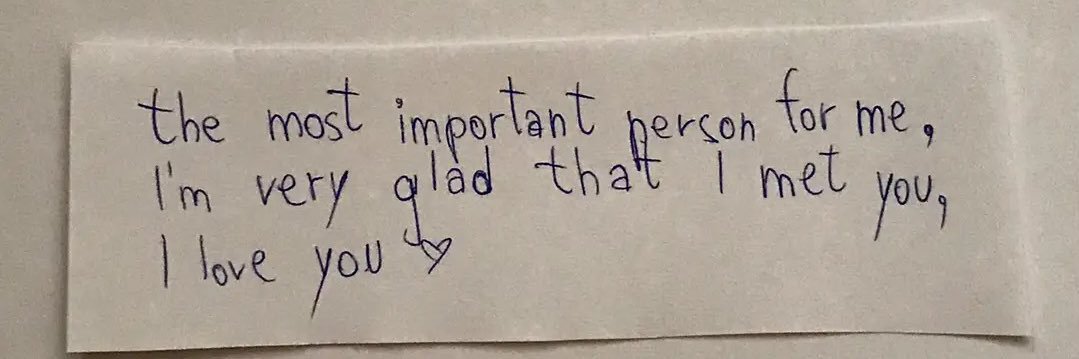 the most important person for me,
I'm very glad that I met you,
I love you ♡